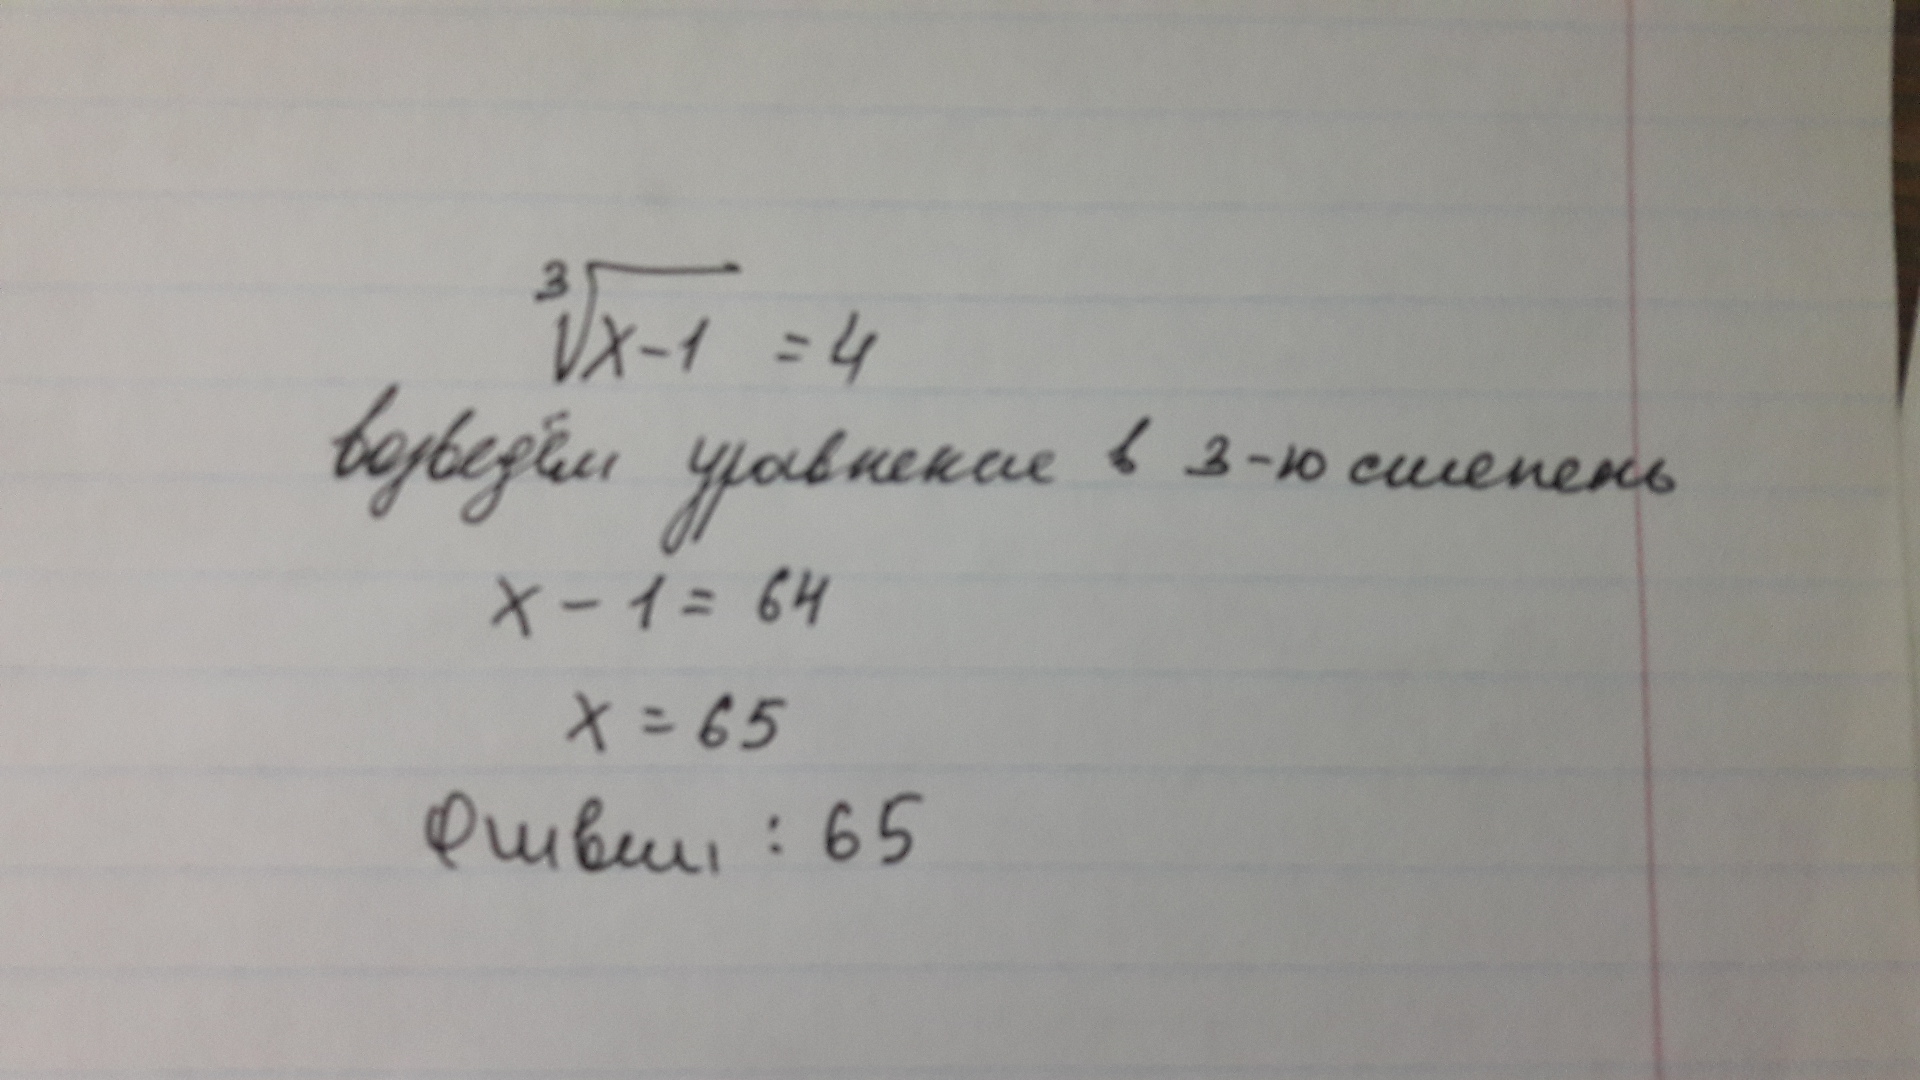 ∛x-1 = 4
возведём уравнение в 3-ю степень
x - 1 = 64
x = 65
Ответ : 65